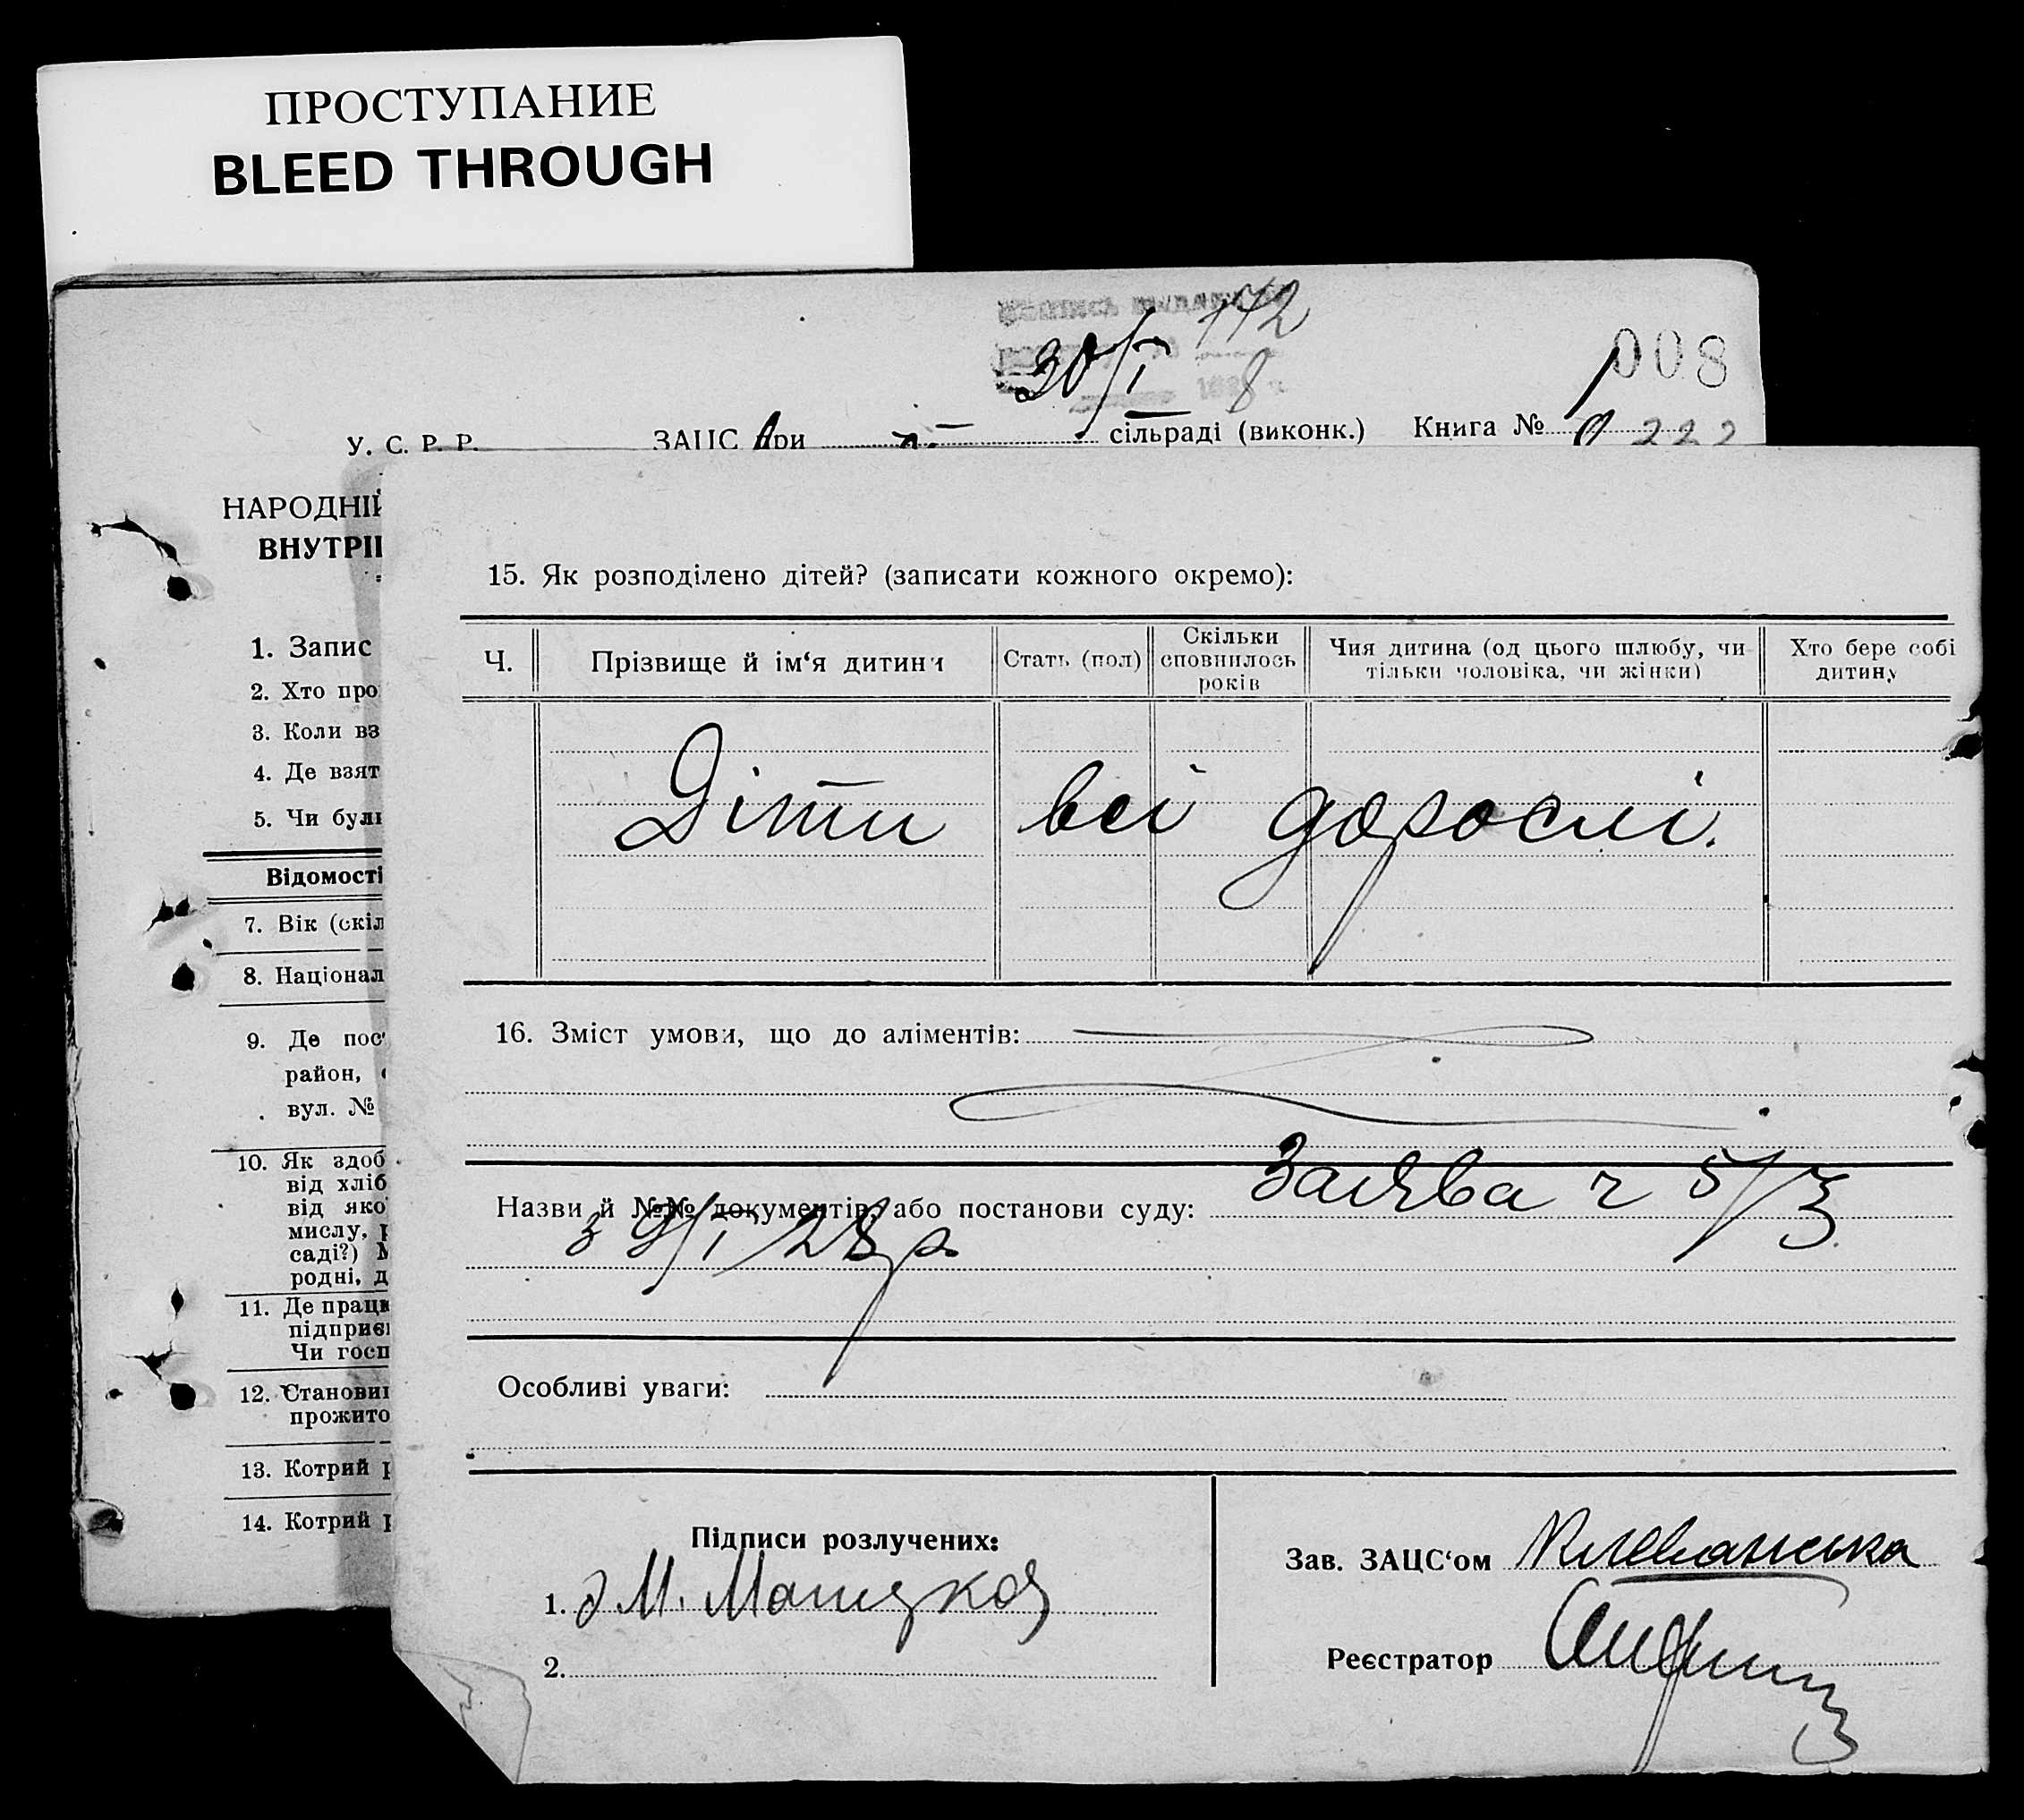 ПРОСТУПАНИЕ
BLEED THROUGH
172
30/I 8
008
У. С. Р. Р. ЗАЦС при сільраді (виконк.) Книга №
НАРОДНІЙ
ВНУТРІ
1. Запис
2. Хто про
3. Коли вз
4. Де взят
5. Чи були
Відомості
7. Вік (скіл
8. Націонал
9. Де пос
район,
вул. №
10. Як здоб
від хліб
від яко
мислу,
саді?)
родні, д
11. Де праци
підприє
Чи госп
12. Станови
прожито
13. Котрий
14. Котрий
15. Як розподілено дітей? (записати кожного окремо):
Ч. Прізвище й ім‘я дитини Стать (пол) Скільки сповнилось років Чия дитина (од цього шлюбу, чи тільки чоловіка, чи жінки) Хто бере собі дитину
Діти всі дорослі.
16. Зміст умови, що до аліментів:
Назви й №№ документів, або постанови суду: Заява ч 5/3
з 9/I 28 р
Особливі уваги:
Підписи розлучених:
1. М.
2.
Зав. ЗАЦС‘ом
Реєстратор